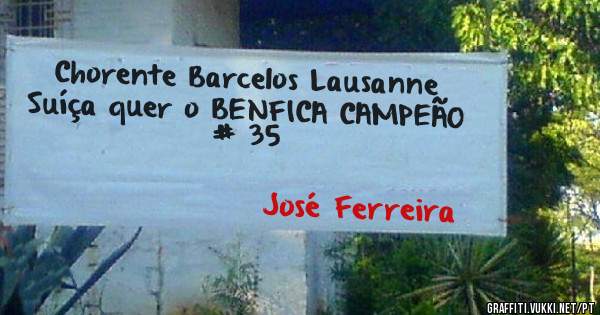 Chorente Barcelos Lausanne
Suíça quer o BENFICA CAMPEÃO
# 35
José Ferreira
GRAFFITI.VUKKI.NET/PT